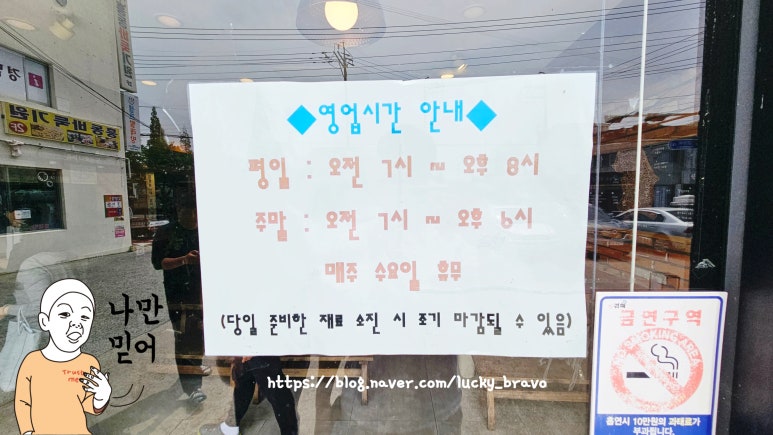 ◆영업시간 안내◆
평일 : 오전 7시 ~ 오후 8시
주말 : 오전 7시 ~ 오후 6시
매주 수요일 휴무
(당일 준비한 재료 소진 시 조기 마감될 수 있음)
나만
믿어
Trust
me
https://blog.naver.com/lucky_bravo
금연구역
NO SMOKING AREA
흡연시 10만원의 과태료가
부과됩니다.
바둑기원
2F